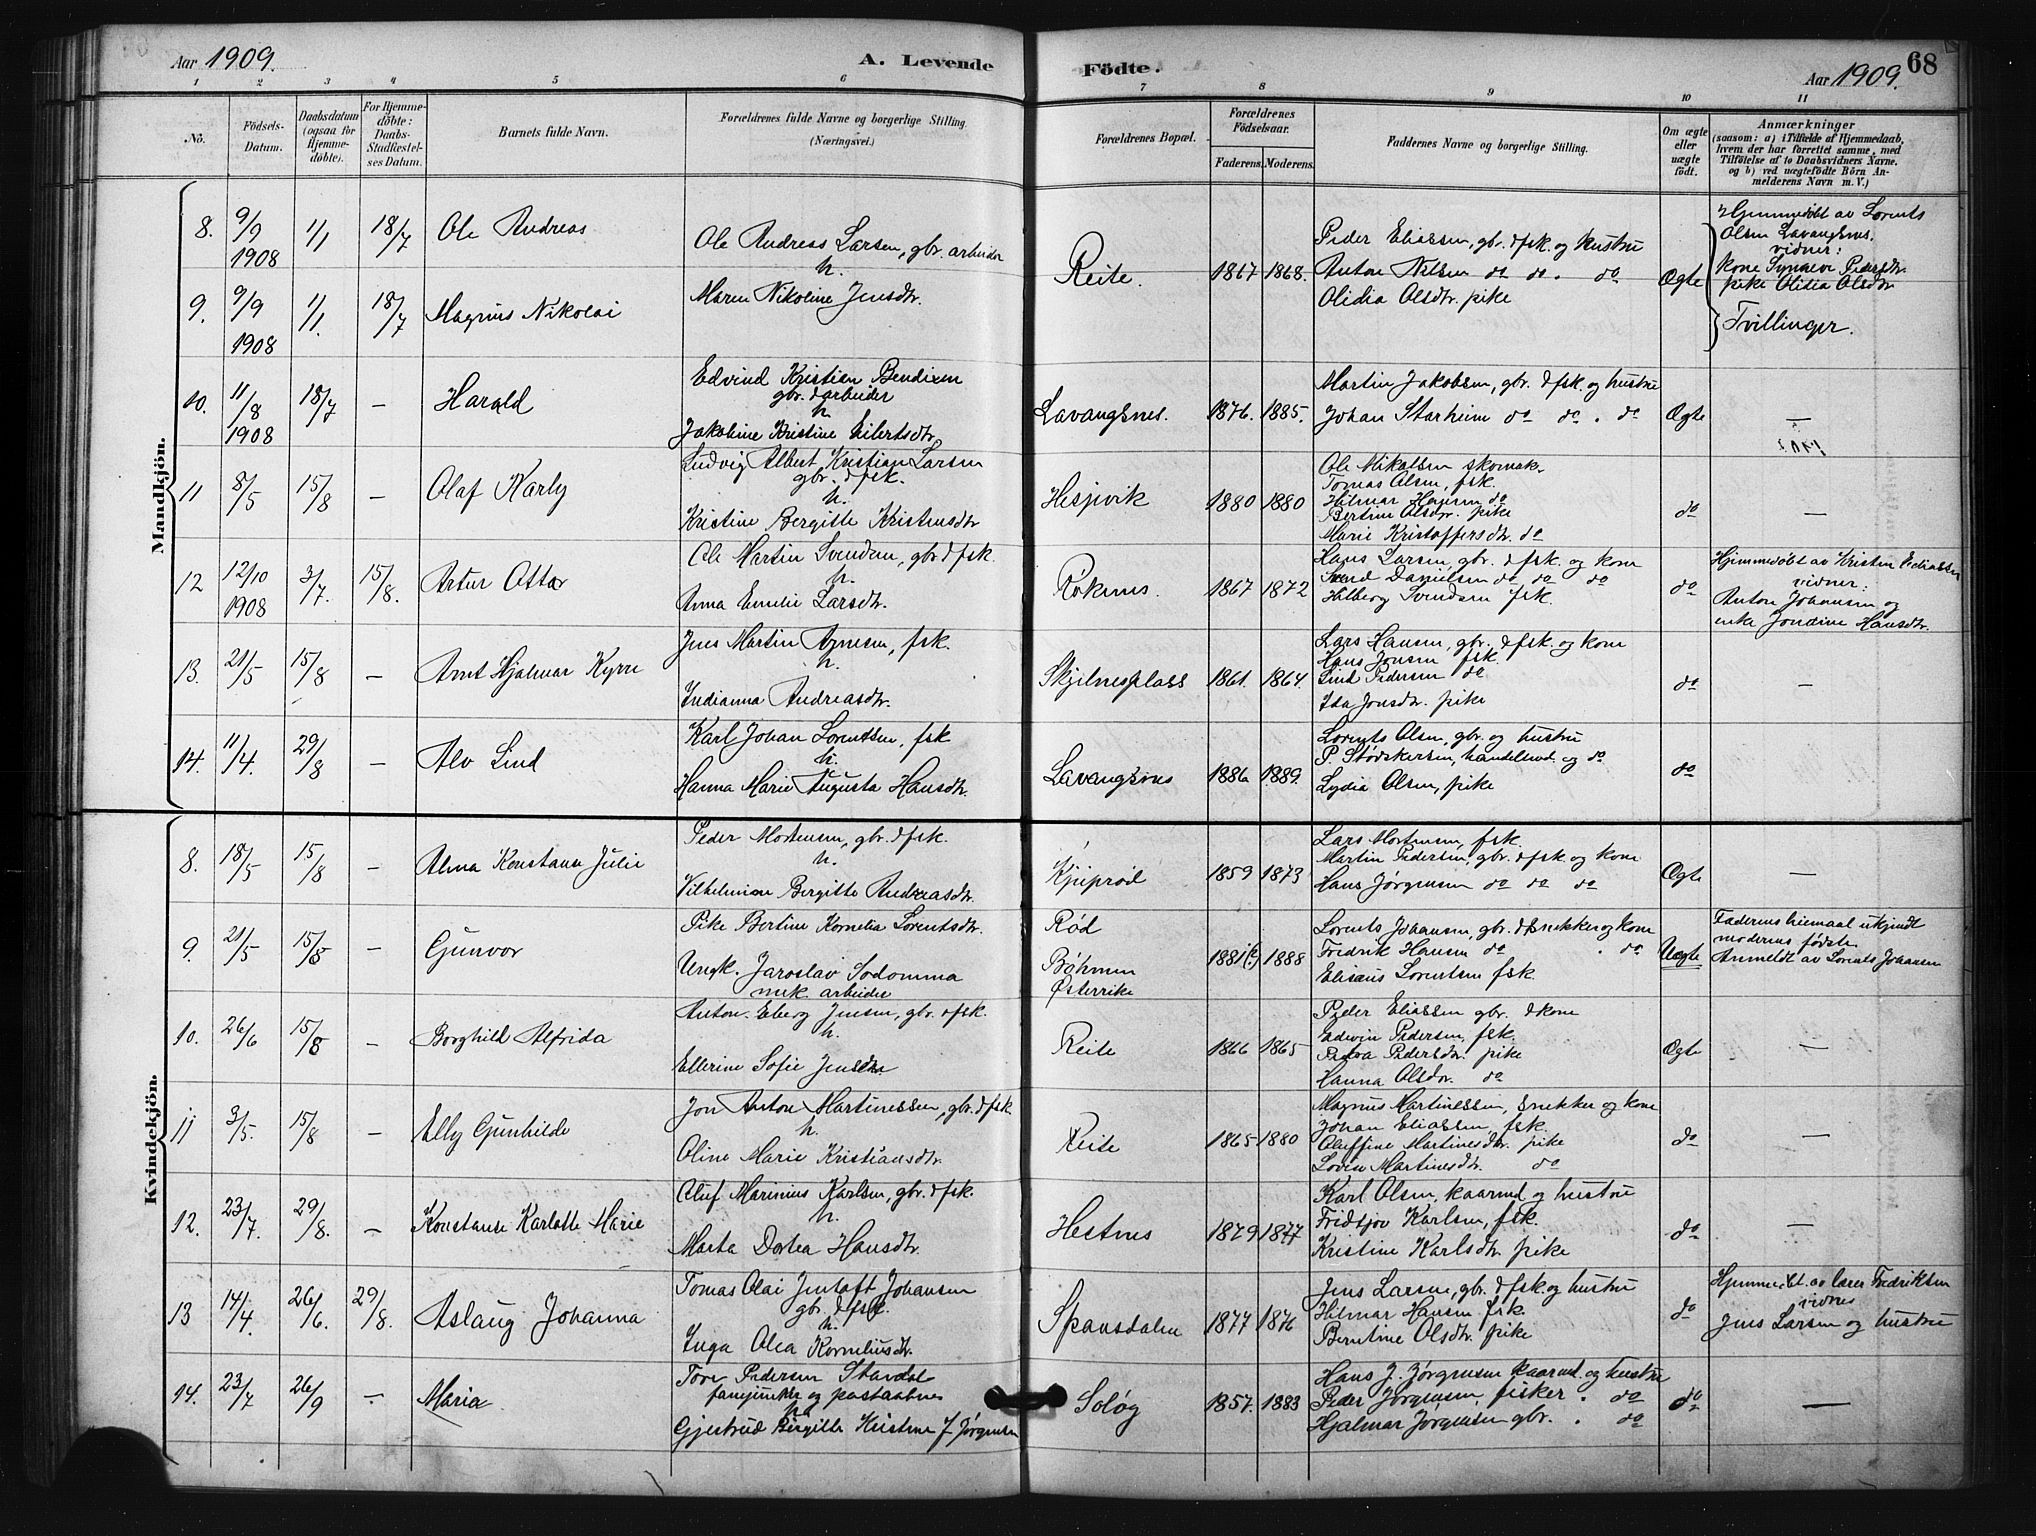 Aar 1909.
A. Levende
Födte.
68
Aar 1909.
1 2 3 4 5 6 7 8 9 10 11
No.
Födsels-
Datum.
Daabsdatum
(ogsaa for
Hjemme-
döbte).
For Hjemme-
döbte:
Daabs-
Stadfæstel-
ses Datum.
Barnets fulde Navn.
Forældrenes fulde Navne og borgerlige Stilling.
(Næringsvei.)
Forældrenes Bopæl.
Forældrenes
Födselsaar.
Faderens. Moderens.
Faddernes Navne og borgerlige Stilling.
Om ægte
eller
uægte
födt.
Anmærkninger
(saasom: a) i Tilfælde af Hjemmedaab,
hvem der har forrettet samme, med
Tilföielse af to Daabsvidners Navne.
og b) ved uægtefödte Börn An-
melderens Navn m. V.)
Mandkjön.
8. 9/9 1908 1/1 18/7 Ole Andreas
Ole Andreas Larsen, gbr. arbeider
h.
Maren Nikoline Jensdtr.
Reite. 1867 1868.
Peder Eliassen, gbr. & fsk. og hustru
Anton Nilsen do do . do
Olidia Olsdtr. pike
Ægte
Hjemmedøbt av Lorents
Olsen Lavangsnes.
vidner:
kone Synneve Pedersdtr.
pike Olidia Olsdtr
Tvillinger.
9. 9/9 1908 1/1. 18/7 Magnus Nikolai
10. 11/8 1908 18/7 – Harald
Edvind Kristian Bendixen
gbr. & arbeider
h.
Jakobine Kristine Eilertsdtr.
Lavangsnes. 1876. 1885.
Martin Jakobsen, gbr. & fsk. og hustru
Johan Starheim do do . do
Ægte –
11 8/5 15/8 – Olaf Karly
Ludvig Albert Kristian Larsen
gbr. & fsk.
h.
Kristine Bergitte Kristensdtr
Hesjevik 1880 1880
Ole Mikalsen skomak.
Tomas Olsen, fsk.
Hilmar Hansen do
Bertine Olsdtr. pike
Marie Kristoffersdtr. do
do –
12 12/10 1908 3/7. 15/8. Artur Ottar
Ole Martin Svendsen, gbr. & fsk.
h.
Anna Emelie Larsdtr.
Røkenes. 1867 1872
Hans Larsen, gbr. & fsk. og kone
Svend Danielsen do do do
Hilberg Svendsen fsk.
do
Hjemmedøbt av Kristen Ediassen
vidner:
Anton Johansen og
enke Jondine Hansdtr.
13. 21/5 15/8 – Arnt Hjalmar Kyrre
Jens Martin Arnesen, fsk.
h.
Indianna Andreasdtr.
Skjelnesplass 1861. 1864.
Lars Hansen, gbr. & fsk. og kone
Hans Jonsen fsk.
Lind Pedersen do
Ida Jonsdtr. pike
do –
14. 11/4. 29/8 – Alv Lind
Karl Johan Lorentsen, fsk
h.
Hanna Marie Augusta Hansdtr.
Lavangsnes 1886 1889.
Lorents Olsen, gbr. og hustru
P. Stødskersen, handelsmd. og do
Lydia Olsen, pike
do
Kvindekjön.
8. 18/5 15/8 – Alma Konstanse Julie
Peder Mortensen, gbr. & fsk.
h.
Vilhelmine Bergitte Andreasdtr.
1859 1873
Lars Mortensen, fsk.
Martin Pedersen, gbr. & fsk. og kone
Hans Jørgensen do do do
Ægte –
9. 21/5 15/8 – Gunvor
Pike Bertine Kornelia Lorentsdtr.
Ungk. Jaroslav Sodomma
mek. arbeider
Rød
Bøhmen
Østerrike
1881(?) 1888
Lorents Johansen, gbr. & snekker og kone
Fredrik Hansen do . do
Elisæus Lorentsen fsk.
Uægte
Faderens hiemaal ukjendt
moderens første.
Anmeldt av Lorents Johansen
10. 26/6 15/8 – Borghild Alfrida
Anton Eberg Jensen, gbr. & fsk.
h.
Ellerine Sofie Jensdtr
Reite 1866 1865
Peder Eliassen gbr. & kone
Edevin Pedersen, fsk.
Petra Pedersdtr. pike
Hanna Olsdtr. do
Ægte –
11 3/5. 15/8 – Elly Gunhilde
Jon Anton Martinessen, gbr. & fsk.
h.
Oline Marie Kristiansdtr.
Reite 1865 1880
Magnus Martinessen, snekker og kone
Johan Eliassen fsk.
Oluffine Martinesdtr. pike
Lovise Martinesdtr. do
do –
12. 23/7. 29/8. – Konstanse Karlotte Marie
Oluf Marinius Karlsen, gbr. & fsk.
h.
Marta Dortea Hansdtr.
Hestnes 1879 1877
Karl Olsen, kaarmd. og hustru
Fridtjov Karlsen, fsk.
Kristine Karlsdtr. pike
do –
13 14/4. 26/6. 29/8. Aslaug Johanna
Tomas Olai Jentoft Johansen
gbr. & fsk.
h.
Inga Olea Korneliusdtr.
Spansdalen 1877 1876
Jens Larsen, gbr. & fsk. og hustru
Hilmar Hansen fsk.
Berntine Olsdtr. pike
do
Hjemmedøbt. av lærer Fredriksen
vidnes
Jens Larsen og hustru
14. 23/7 26/9 – Maria
Tore Pedersen Stavdal
fanejunker og postaabner
h.
Gjertrud Bergitte Kristine f. Jørgensen
Soløy 1857. 1883
Hans J. Jørgensen kaarmd. og hustru
Peder Jørgensen, fisker . do
Hjalmar Jørgensen gbr. . do
do –